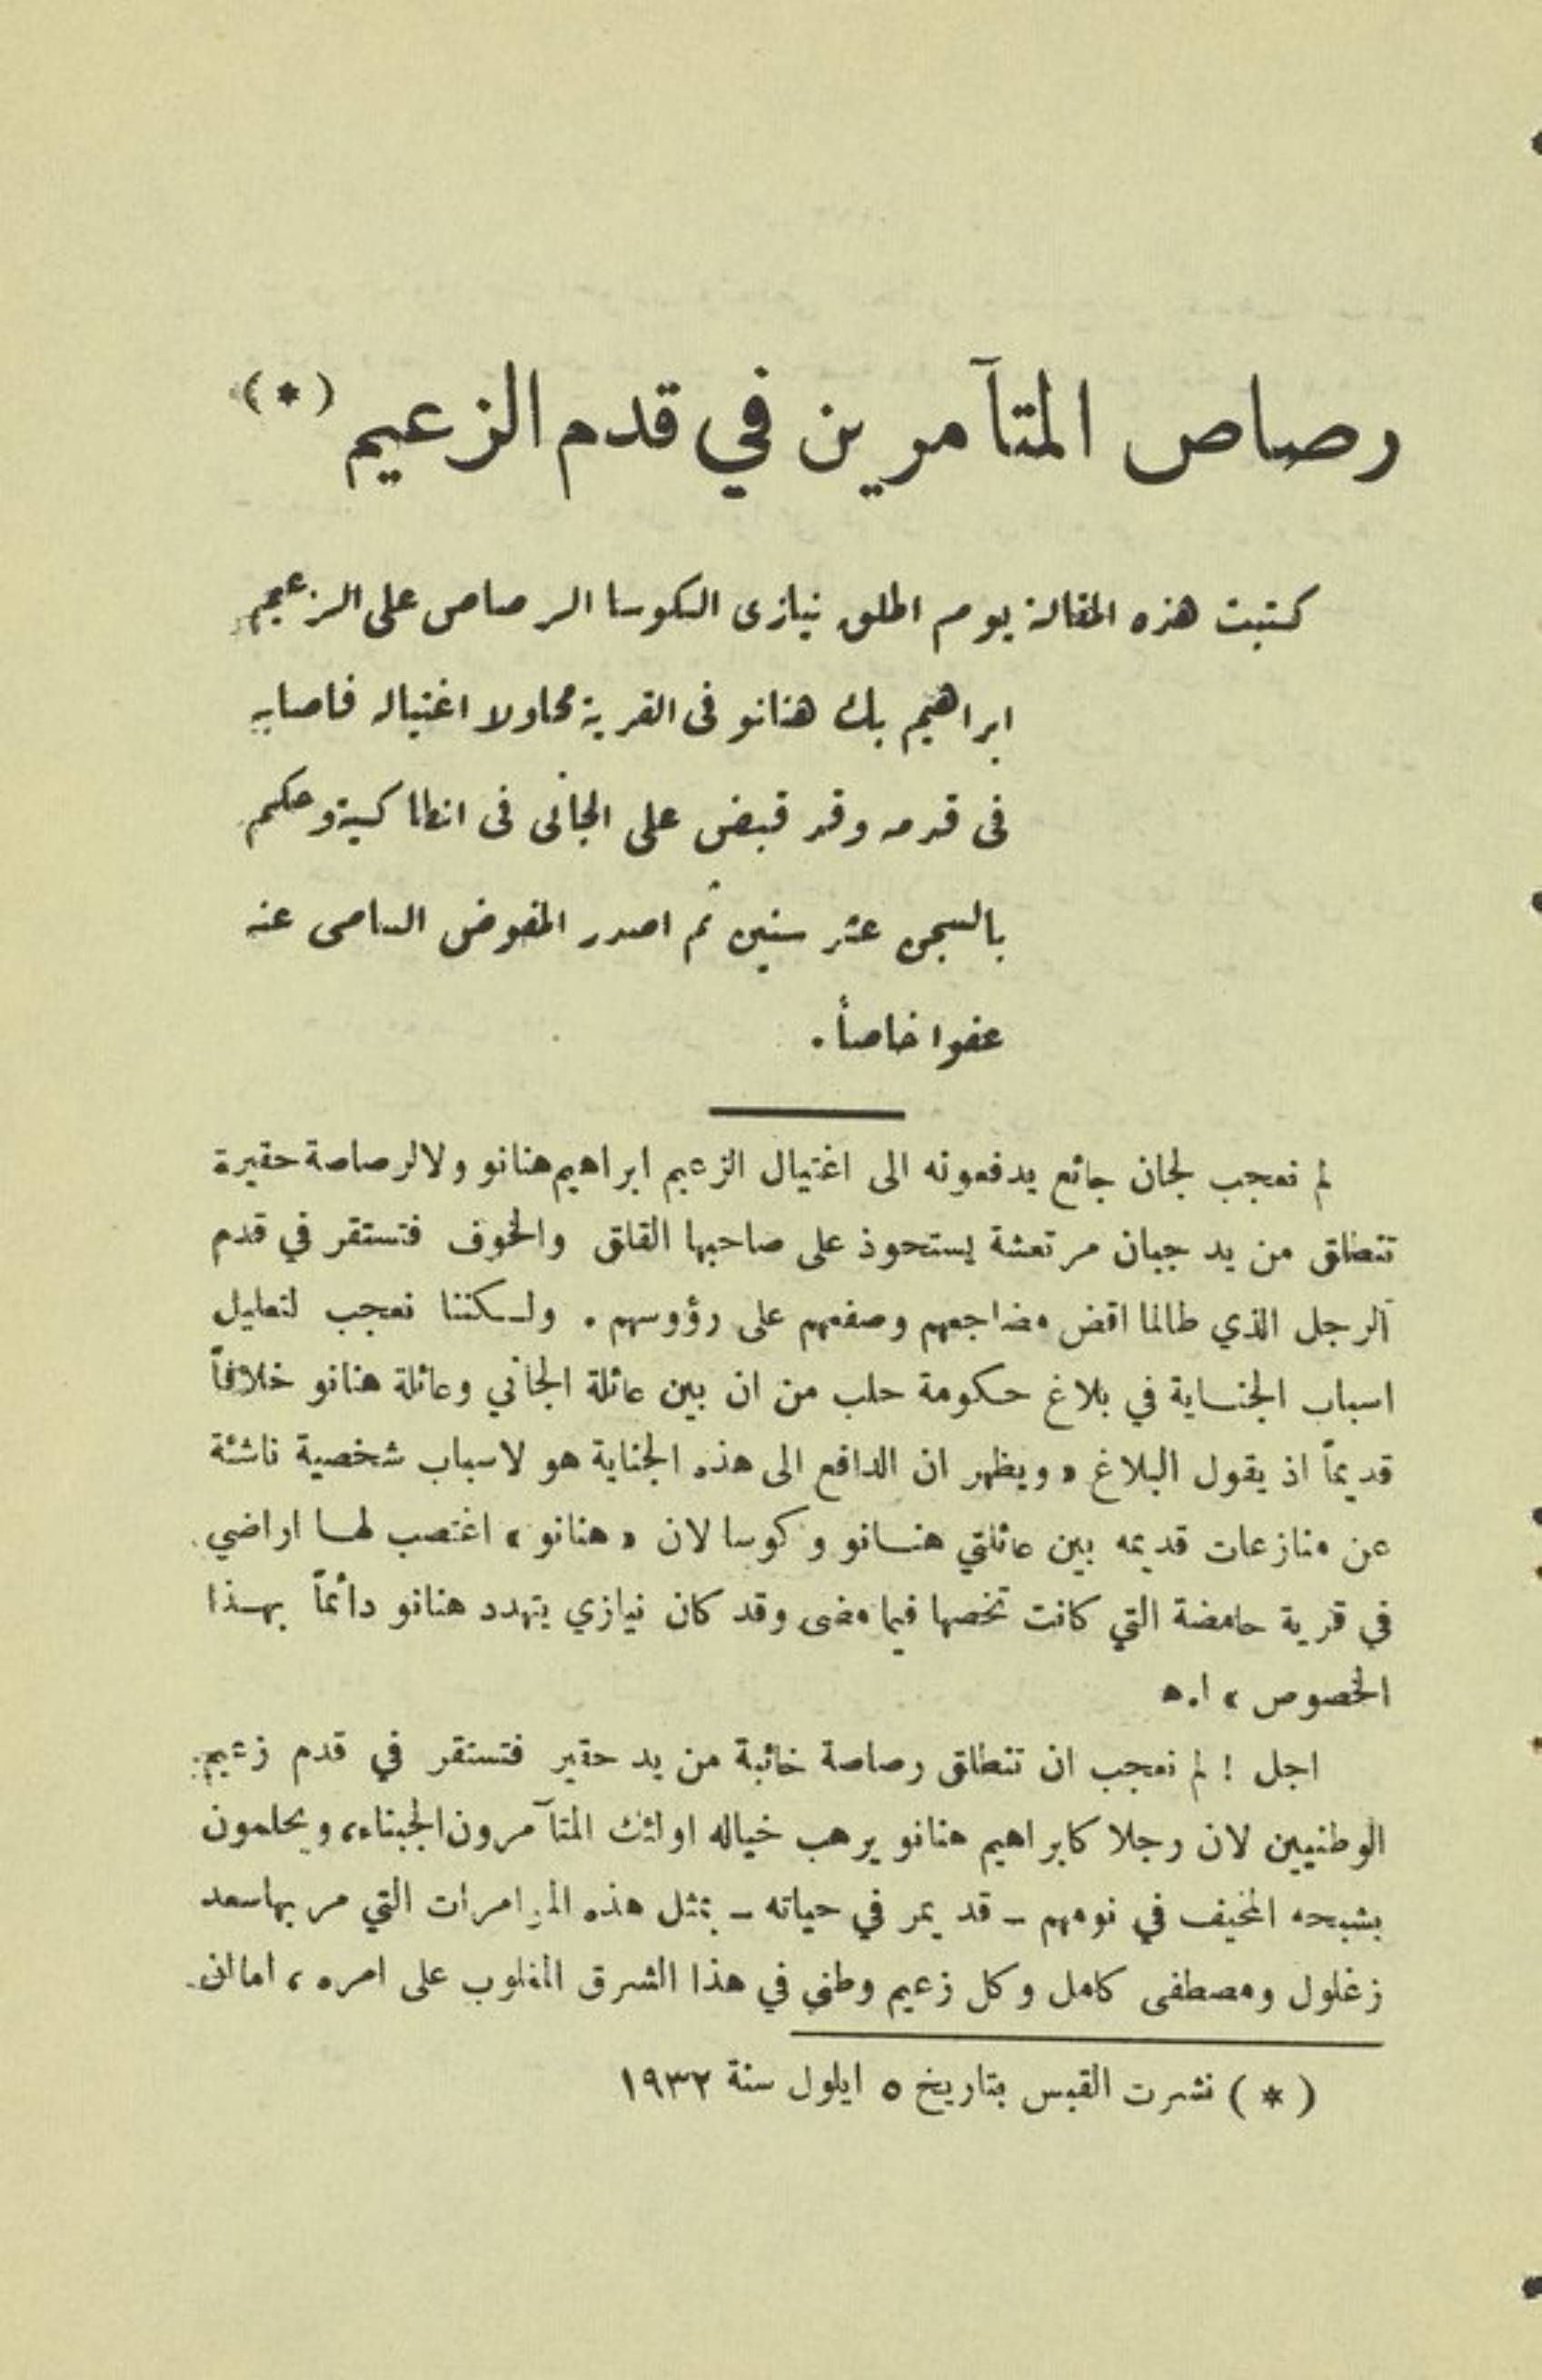 رصاص المتآمرين في قدم الزعيم (*)
كتبت هذه المقالة يوم اطلق نيازى الكوسا الرصاص على الزعيم
ابراهيم بك هنانو فى القرية محاولا اغتياله فاصابه
فى قدمه وقد قبض على الجانى فى انطاكية وحكم
بالسجن عشر سنين ثم اصدر المفوض السامى عنه
عفوا خاصاً .
لم نعجب لجان جائع يدفعونه الى اغتيال الزعيم ابراهيم هنانو ولا لرصاصة حقيرة
تنطلق من يد جبان مرتعشة يستحوذ على صاحبها القلق والخوف فتستقر في قدم
الرجل الذي طالما اقض مضاجعهم وصفعهم على رؤوسهم . ولكننا نعجب لتعليل
اسباب الجناية في بلاغ حكومة حلب من ان بين عائلة الجاني وعائلة هنانو خلافاً
قديماً اذ يقول البلاغ « ويظهر ان الدافع الى هذه الجناية هو لاسباب شخصية ناشئة
عن منازعات قديمه بين عائلتي هنانو وكوسا لان « هنانو » اغتصب لها اراضي
في قرية حامضة التي كانت تخصها فيما مضى وقد كان نيازي يتهدد هنانو دائماً بهذا
الخصوص » ا.ه
اجل ! لم نعجب ان تنطلق رصاصة خائبة من يد حقير فتستقر في قدم زعيم
الوطنيين لان رجلا كابراهيم هنانو يرهب خياله اولئك المتآمرون الجبناء، ويحلمون
بشبحه المخيف في نومهم - قد يمر في حياته - بمثل هذه المؤامرات التي مر بها سعد
زغلول ومصطفى كامل وكل زعيم وطني في هذا الشرق المغلوب على امره ، اما ان
(*) نشرت القبس بتاريخ ٥ ايلول سنة ١٩٣٢